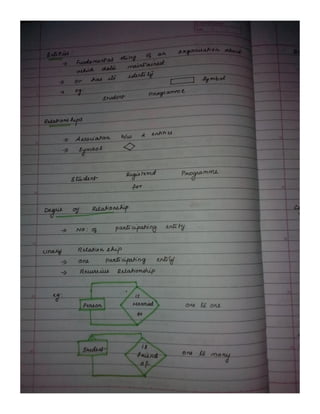 Entities
→ Fundamental thing of an organisation about
which data maintained
→ or has its identity Symbol
→ eg
Student Programme
Relationships
→ Association b/w 2 entities
→ Symbol
Student Registered Programme
for
Degree of Relationship
→ No: of participating entity
Unary Relation ship
→ One participating entity
→ Recursive Relationship
eg: Person is married to one to one
Student is friend of one to many